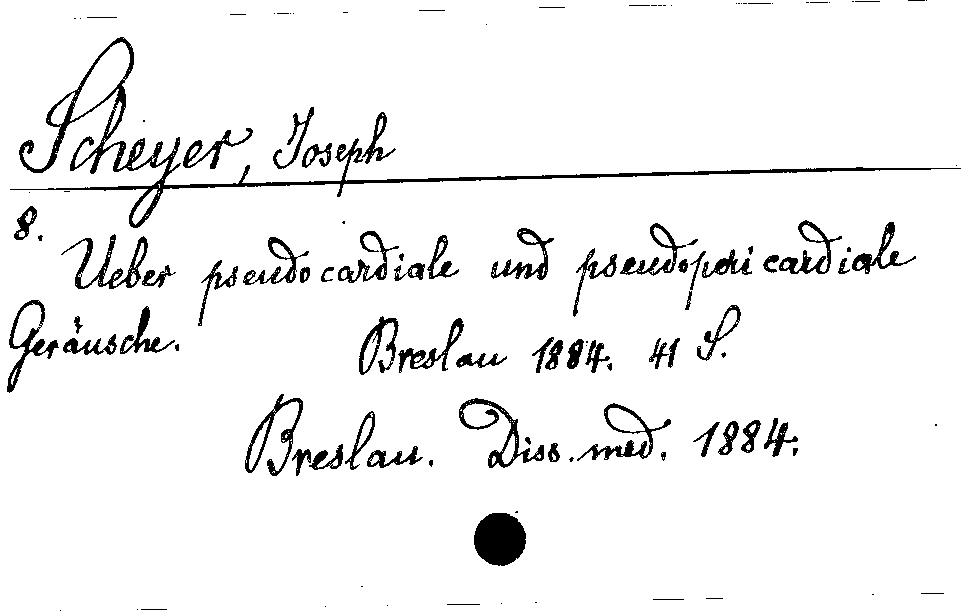 Scheyer, Joseph
8.
Ueber pseudocardiale und pseudopericardiale
Geräusche. Breslau 1884. 41 S.
Breslau. Diss. med. 1884.